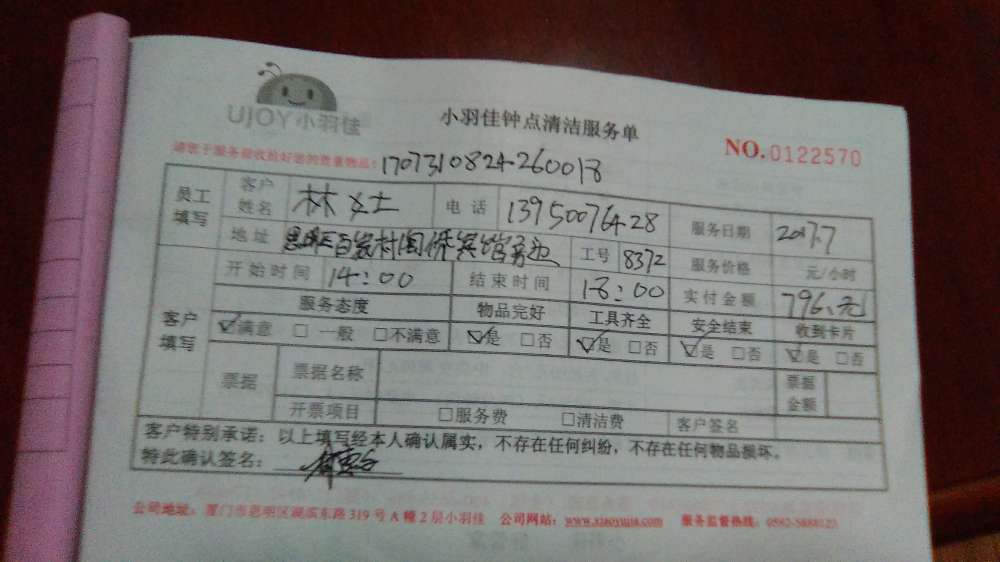 UJOY小羽佳
小羽佳钟点清洁服务单
NO.0122570
请您于服务前收拾好您的贵重物品:1707310824260018
员工填写 客户姓名 林女士 电话 13950076428 服务日期 2017.7
地址 思明区百家村闽侨宾馆旁边 工号 8372 服务价格 元/小时
开始时间 14:00 结束时间 18:00 实付金额 796.元
客户填写 服务态度 物品完好 工具齐全 安全结束 收到卡片
☑满意 □一般 □不满意 ☑是 □否 ☑是 □否 ☑是 □否 ☑是 □否
票据 票据名称 票据金额
开票项目 □服务费 □清洁费 客户签名
客户特别承诺:以上填写经本人确认属实,不存在任何纠纷,不存在任何物品损坏。
特此确认签名:
公司地址:厦门市思明区湖滨东路319号A幢2层小羽佳 公司网站:www.xiaoyujia.com 服务监督热线:0592-5888123